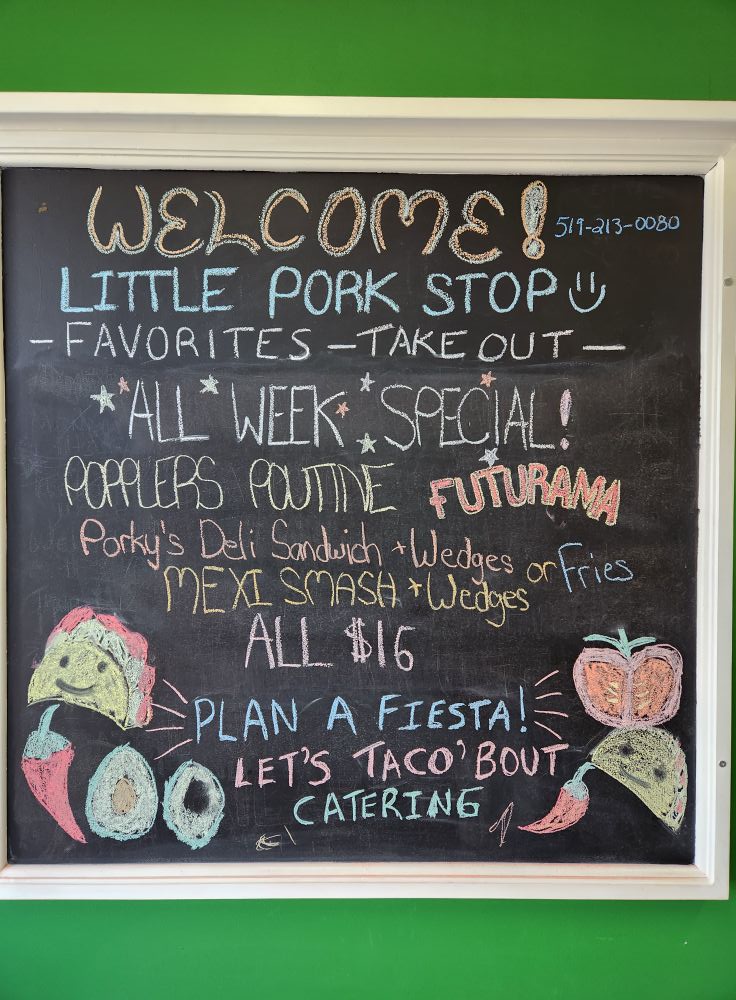 WELCOME! 519-213-0080
LITTLE PORK STOP
- FAVORITES - TAKE OUT -
ALL WEEK SPECIAL!
POPPLERS POUTINE FUTURAMA
Porky's Deli Sandwich + Wedges or Fries
MEXI SMASH + Wedges
ALL $16
PLAN A FIESTA!
LET'S TACO 'BOUT
CATERING